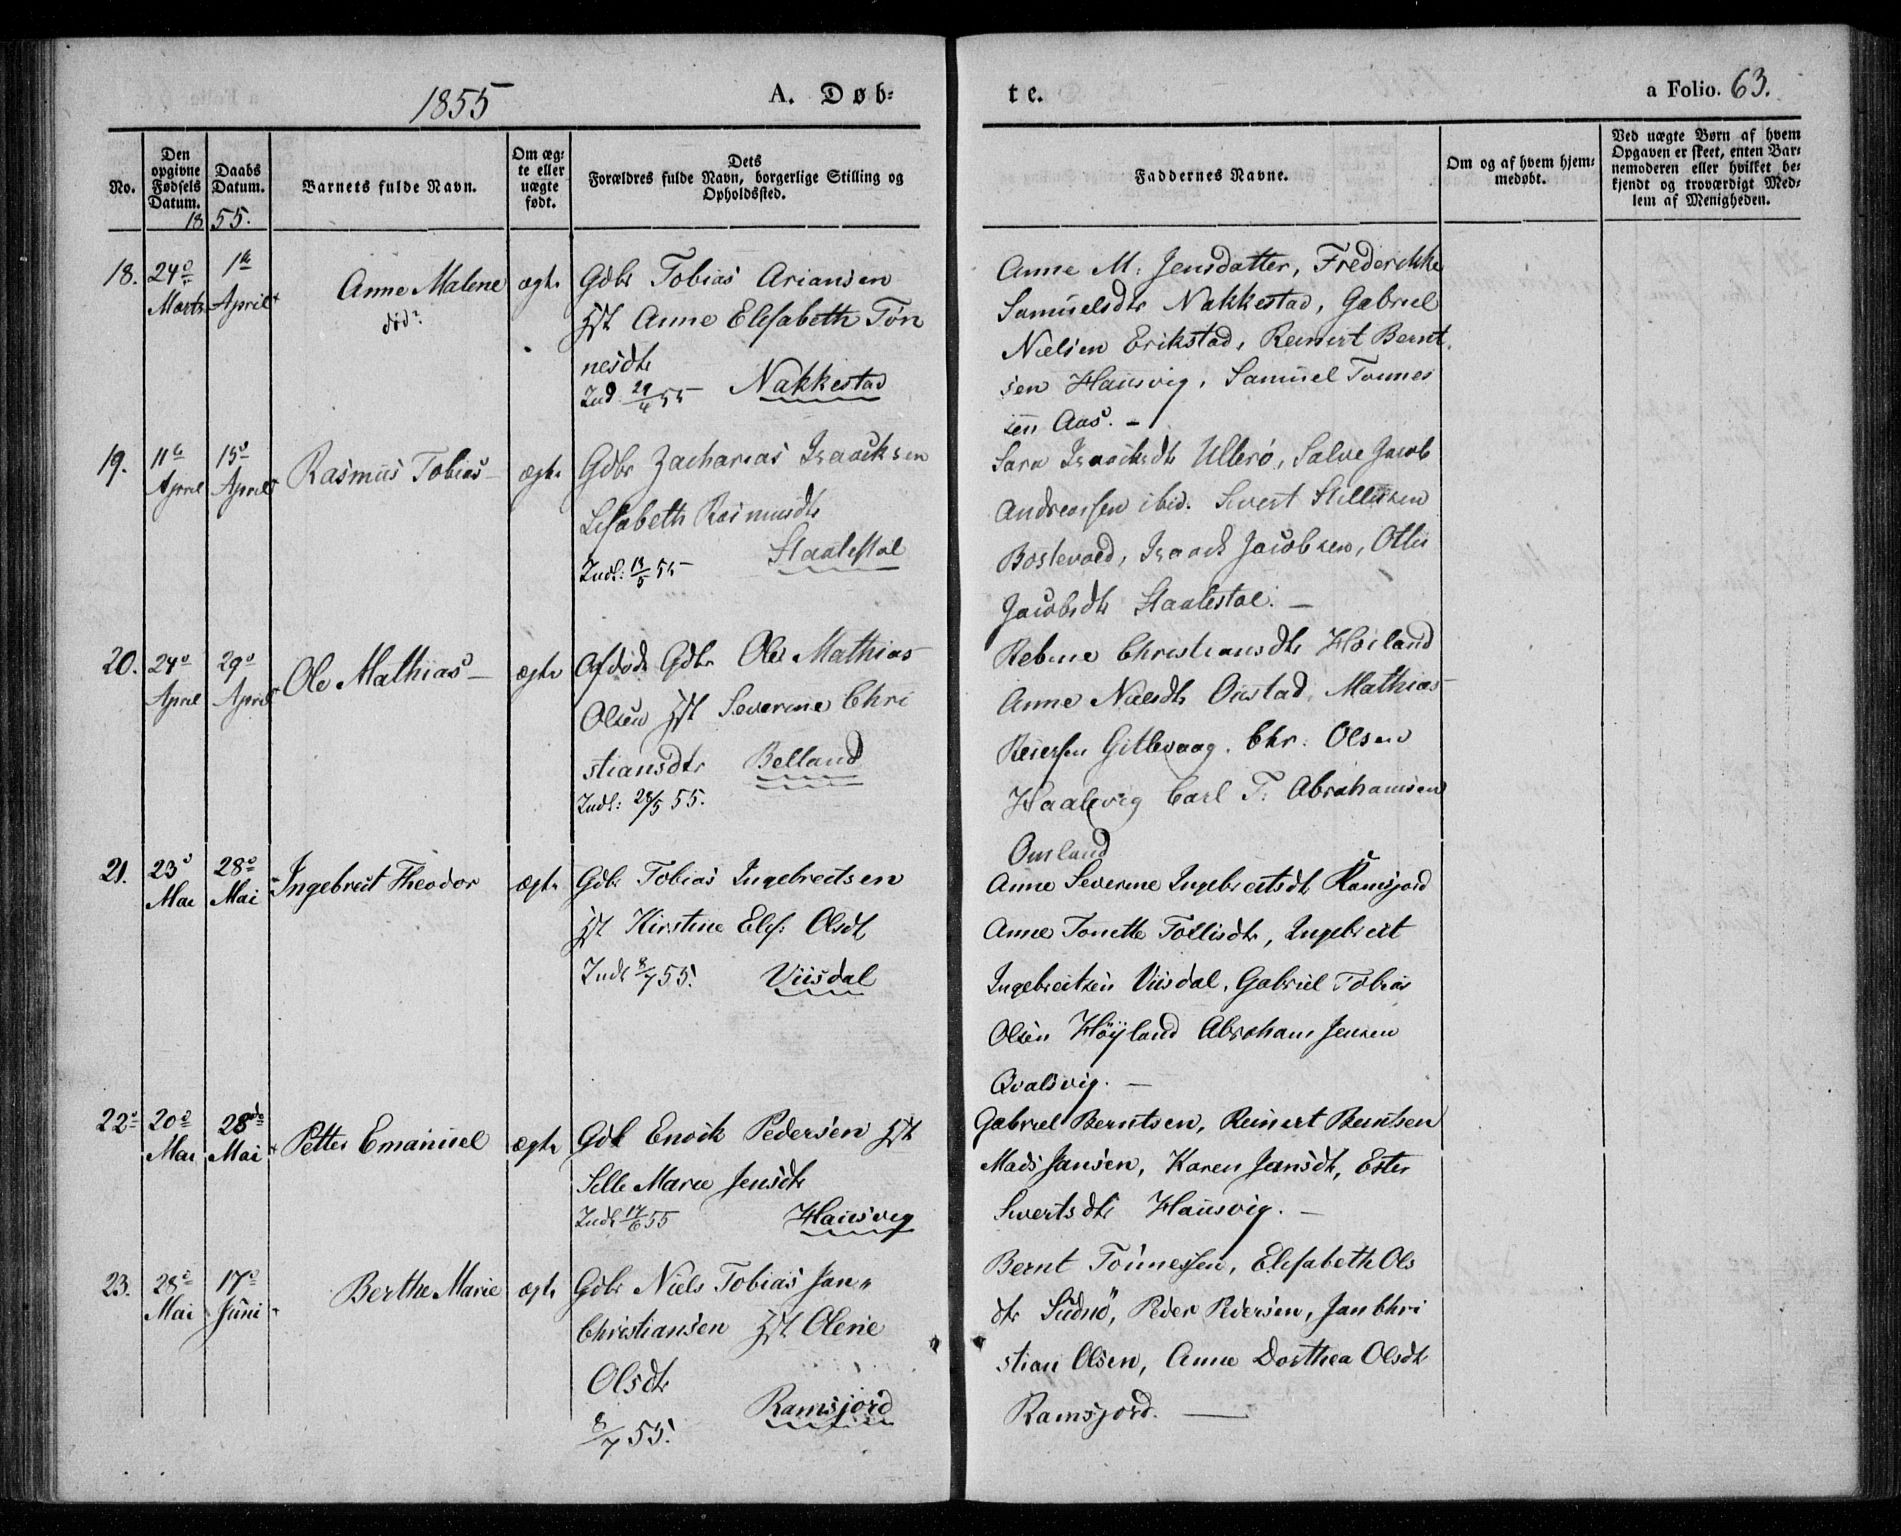 1855 A. Døb-
te. a Folio. 63.
No.
Den opgivne Fødsels Datum.
Daabs Datum.
1855.
Barnets fulde Navn.
Om ægte eller uægte født.
Dets
Forældres fulde Navn, borgerlige Stilling og
Opholdssted.
Faddernes Navne.
Om og af hvem hjemmedøbt.
Ved uægte Børn af hvem
Opgaven er skeet, enten Bar-
nemoderen eller hvilket be-
kjendt og troværdigt Med-
lem af Menigheden.
18. 24de Marts 1ste April Anne Malene død ægte
Gdbr Tobias Ariansen
Hst Anne Elisabeth Tøn
nesdtr
Ind 29/4 55 Nakkestad
Anne M. Jensdatter, Frederikke
Samuelsdtr Nakkestad, Gabriel
Nielsen Erikstad, Reinert Bernt
sen Hausvig, Samuel Tønnes
sen Aas. –
19. 11te April 15de April Rasmus Tobias – ægte
Gdbr Zacharias Isaacksen
Lisabeth Rasmusdtr
Staalestøl
Indl: 13/5 55
Sara Isaacksdtr Ullerø, Salve Jacob
Andreassen ibid. Sivert
Isaack Jacobsen,
Jacobsdtr Staalestøl. –
20. 24de April 29de April Ole Mathias – ægte
Afdøde Gdbr Ole Mathias
Olsen Hst Severine Chri
stiansdtr Belland
Indl: 28/5 55.
Rebine Christiansdtr Høiland
Anne Nilsdtr Mathias
Reiersen Gitlevaag. Chr. Olsen
Haalevig Carl T. Abrahamsen
Omland
21. 23de Mai 28de Mai Ingebreit Theodor ægte
Gdbr Tobias Ingebreitsen
Hst Kirstine Elis: Olsdtr
Indl 8/7 55. Viisdal
Anne Severine Ingebreitsdtr Ramsjord
Anne Tonette Tollisdtr, Ingebreit
Ingebreitsen Viisdal, Gabriel Tobias
Olsen Høÿland Abraham Jensen
Qvalsvig. –
22. 20de Mai 28de Mai Petter Emanuel ægte
Gdb Enock Pedersen Hst
Sille Marie Jensdtr
Indl 17/6 55 Hausvig
Gabriel Berntsen, Reinert Berntsen
Mads Jansen, Karen Jansdtr, Ester
Sivertsdtr Hausvig. –
23. 28de Mai 17de Juni Berthe Marie ægte
Gdbr Niels Tobias Jan
Christiansen Hst Olene
Olsdtr
8/7 55. Ramsjord
Bernt Tønnessen, Elisabeth Ols
dtr Sudnø, Peder Pedersen, Jan Chri
stian Olsen, Anne Dorthea Olsdtr
Ramsjord. –